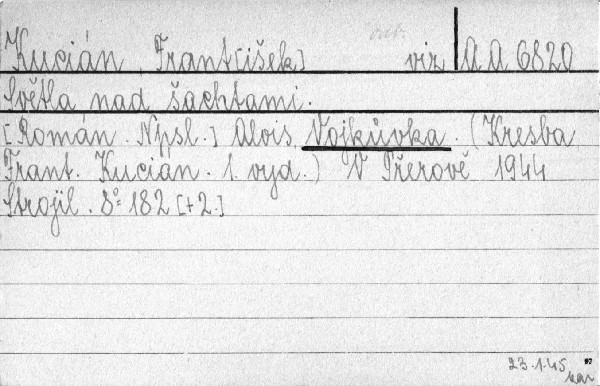 Kucián, Frant[išek] viz AA 6820
Světla nad šachtami.
[Román. Npsl.] Alois Vojkůvka. (Kresba
Frant. Kucián. 1. vyd.) V Přerově 1944
Strojil. 8° 182 [+2.]
23.1.45